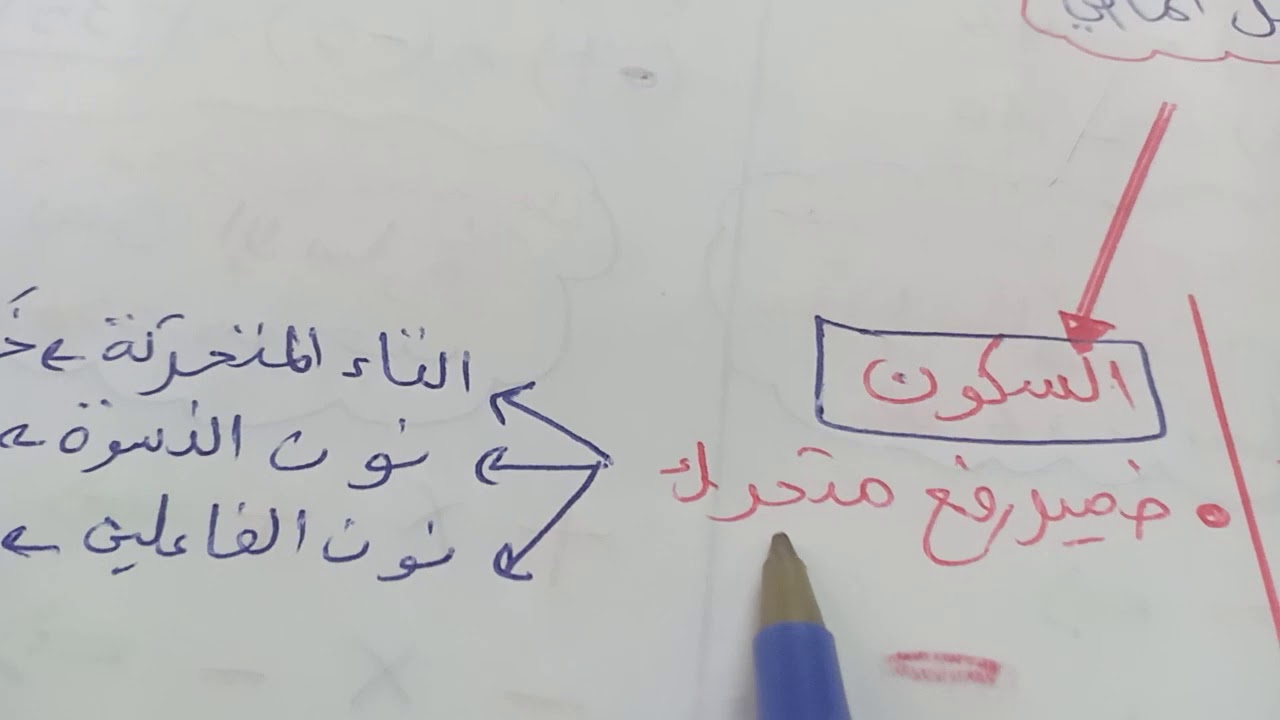 السكون
ضمير رفع متحرك
التاء المتحركة
نون النسوة
نون الفاعلين